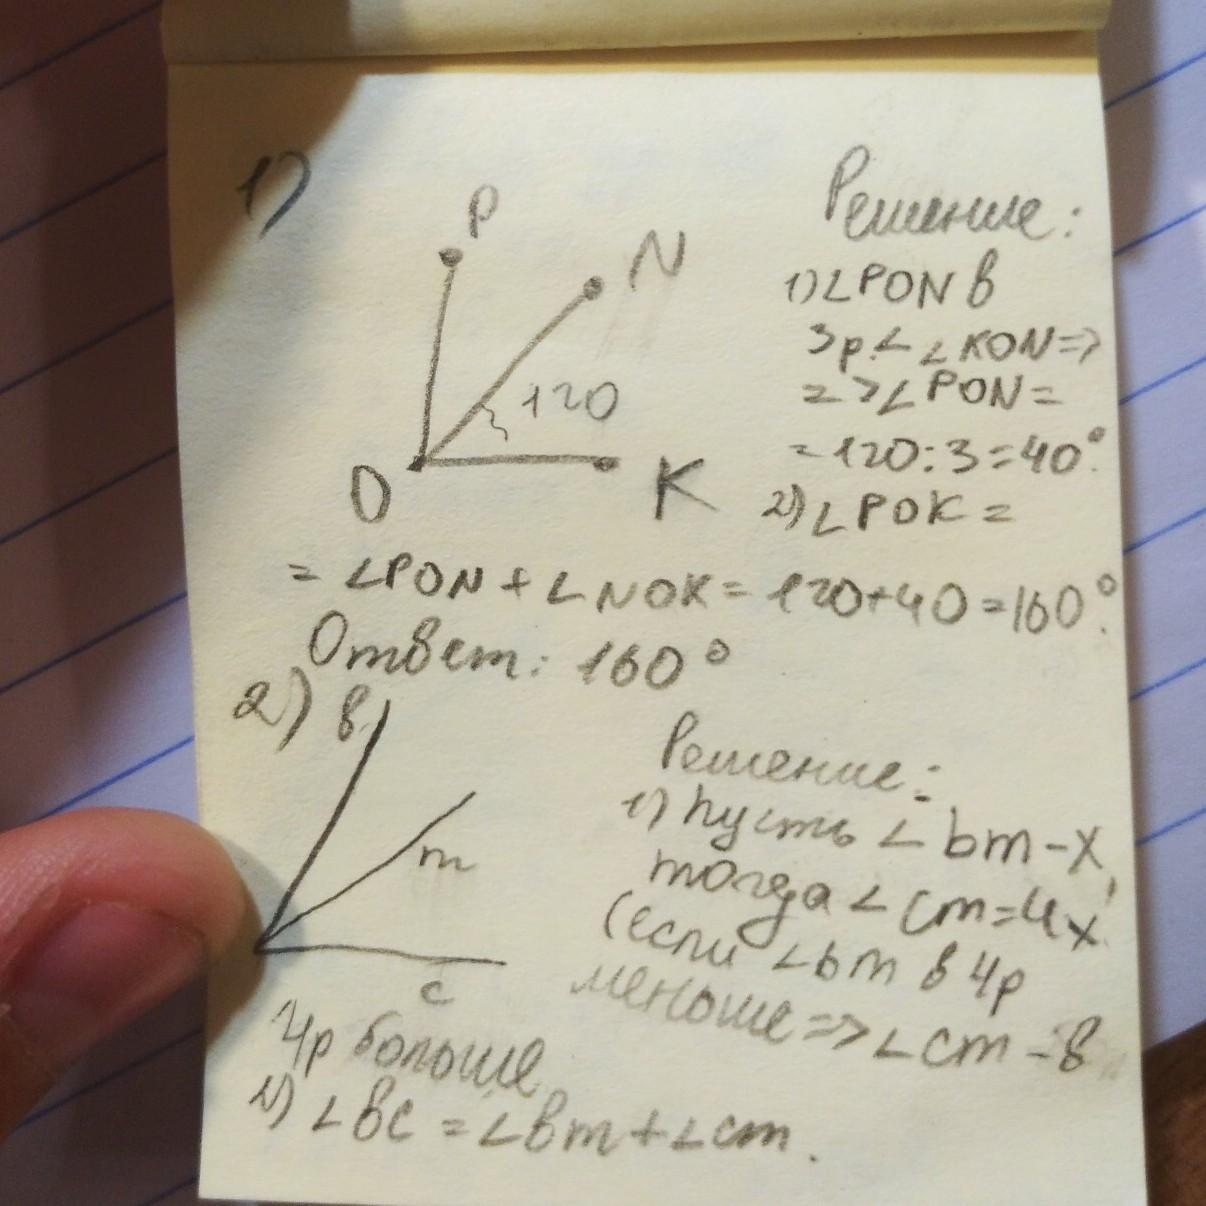 1)
P
N
120
O
K
Решение:
1) ∠PON в
3р.< ∠KON=>
=>∠PON=
=120:3=40°.
2) ∠POK=
= ∠PON+∠NOK=120+40=160°.
Ответ: 160°
2)
в
m
c
Решение:
1) Пусть ∠bm-x,
тогда ∠cm=4x
(если ∠bm в 4р
меньше=>∠cm-в
4р больше
2) ∠вc=∠вm+∠cm.